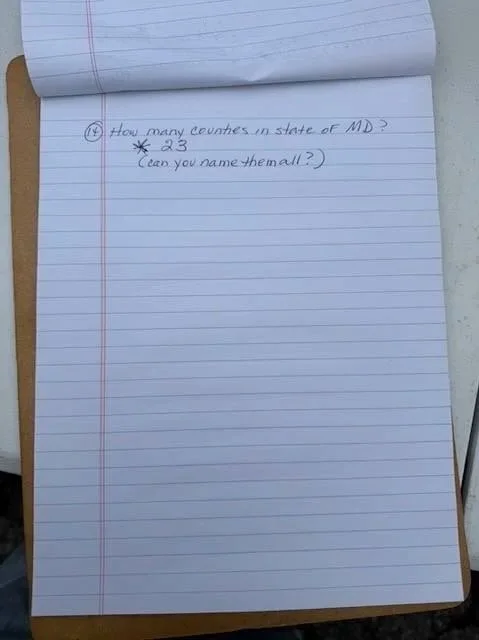 14 How many counties in state of MD?
* 23
(can you name them all?)